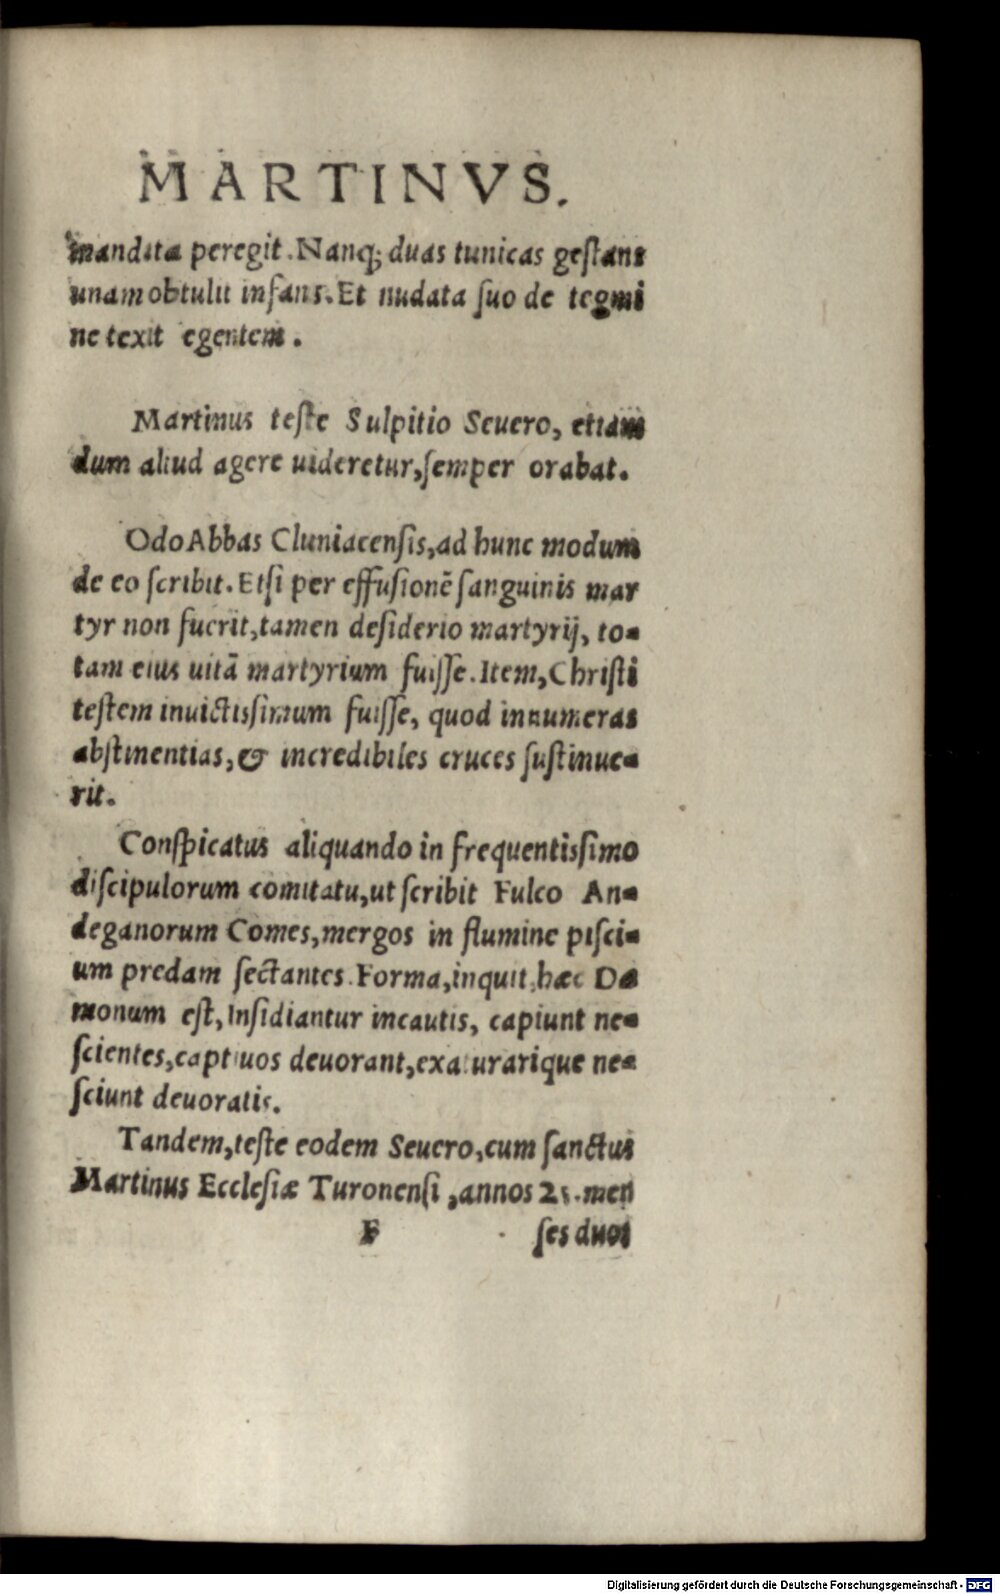 MARTINVS.
mandata peregit. Nanq; duas tunicas gestans
unam obtulit infans. Et nudata suo de tegmi
ne texit egentem.
Martinus teste Sulpitio Seuero, etiam
dum aliud agere uideretur, semper orabat.
Odo Abbas Cluniacensis, ad hunc modum
de eo scribit. Etsi per effusionē sanguinis mar
tyr non fuerit, tamen desiderio martyrij, to-
tam eius uitā martyrium fuisse. Item, Christi
testem inuictissimum fuisse, quod innumeras
abstinentias, & incredibiles cruces sustinue-
rit.
Conspicatus aliquando in frequentissimo
discipulorum comitatu, ut scribit Fulco An-
deganorum Comes, mergos in flumine pisci-
um predam sectantes. Forma, inquit, hæc Dæ
monum est, Insidiantur incautis, capiunt ne-
scientes, captiuos deuorant, exaturarique ne-
sciunt deuoratis.
Tandem, teste eodem Seuero, cum sanctus
Martinus Ecclesiæ Turonensi, annos 25. men
F ses duos
Digitalisierung gefördert durch die Deutsche Forschungsgemeinschaft - DFG